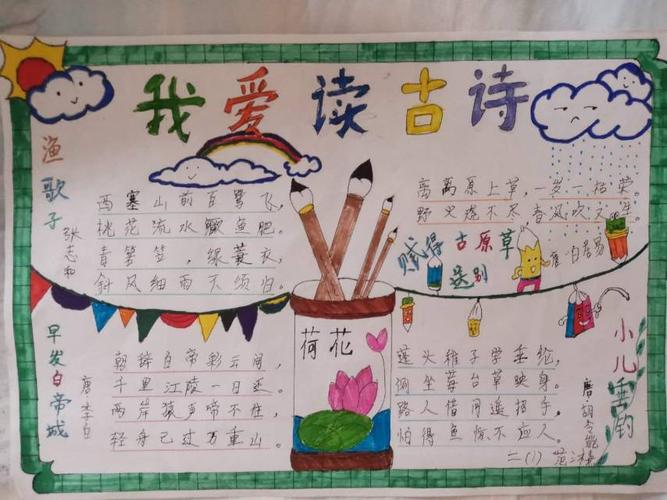 我爱读古诗
渔歌子
张志和
西塞山前白鹭飞，
桃花流水鳜鱼肥。
青箬笠，绿蓑衣，
斜风细雨不须归。
离离原上草，一岁一枯荣。
野火烧不尽，春风吹又生。
赋得古原草
送别
唐 白居易
早发白帝城
唐 李白
朝辞白帝彩云间，
千里江陵一日还。
两岸猿声啼不住，
轻舟已过万重山。
荷花
小儿垂钓
唐 胡令能
蓬头稚子学垂纶，
侧坐莓苔草映身。
路人借问遥招手，
怕得鱼惊不应人。
二(1)